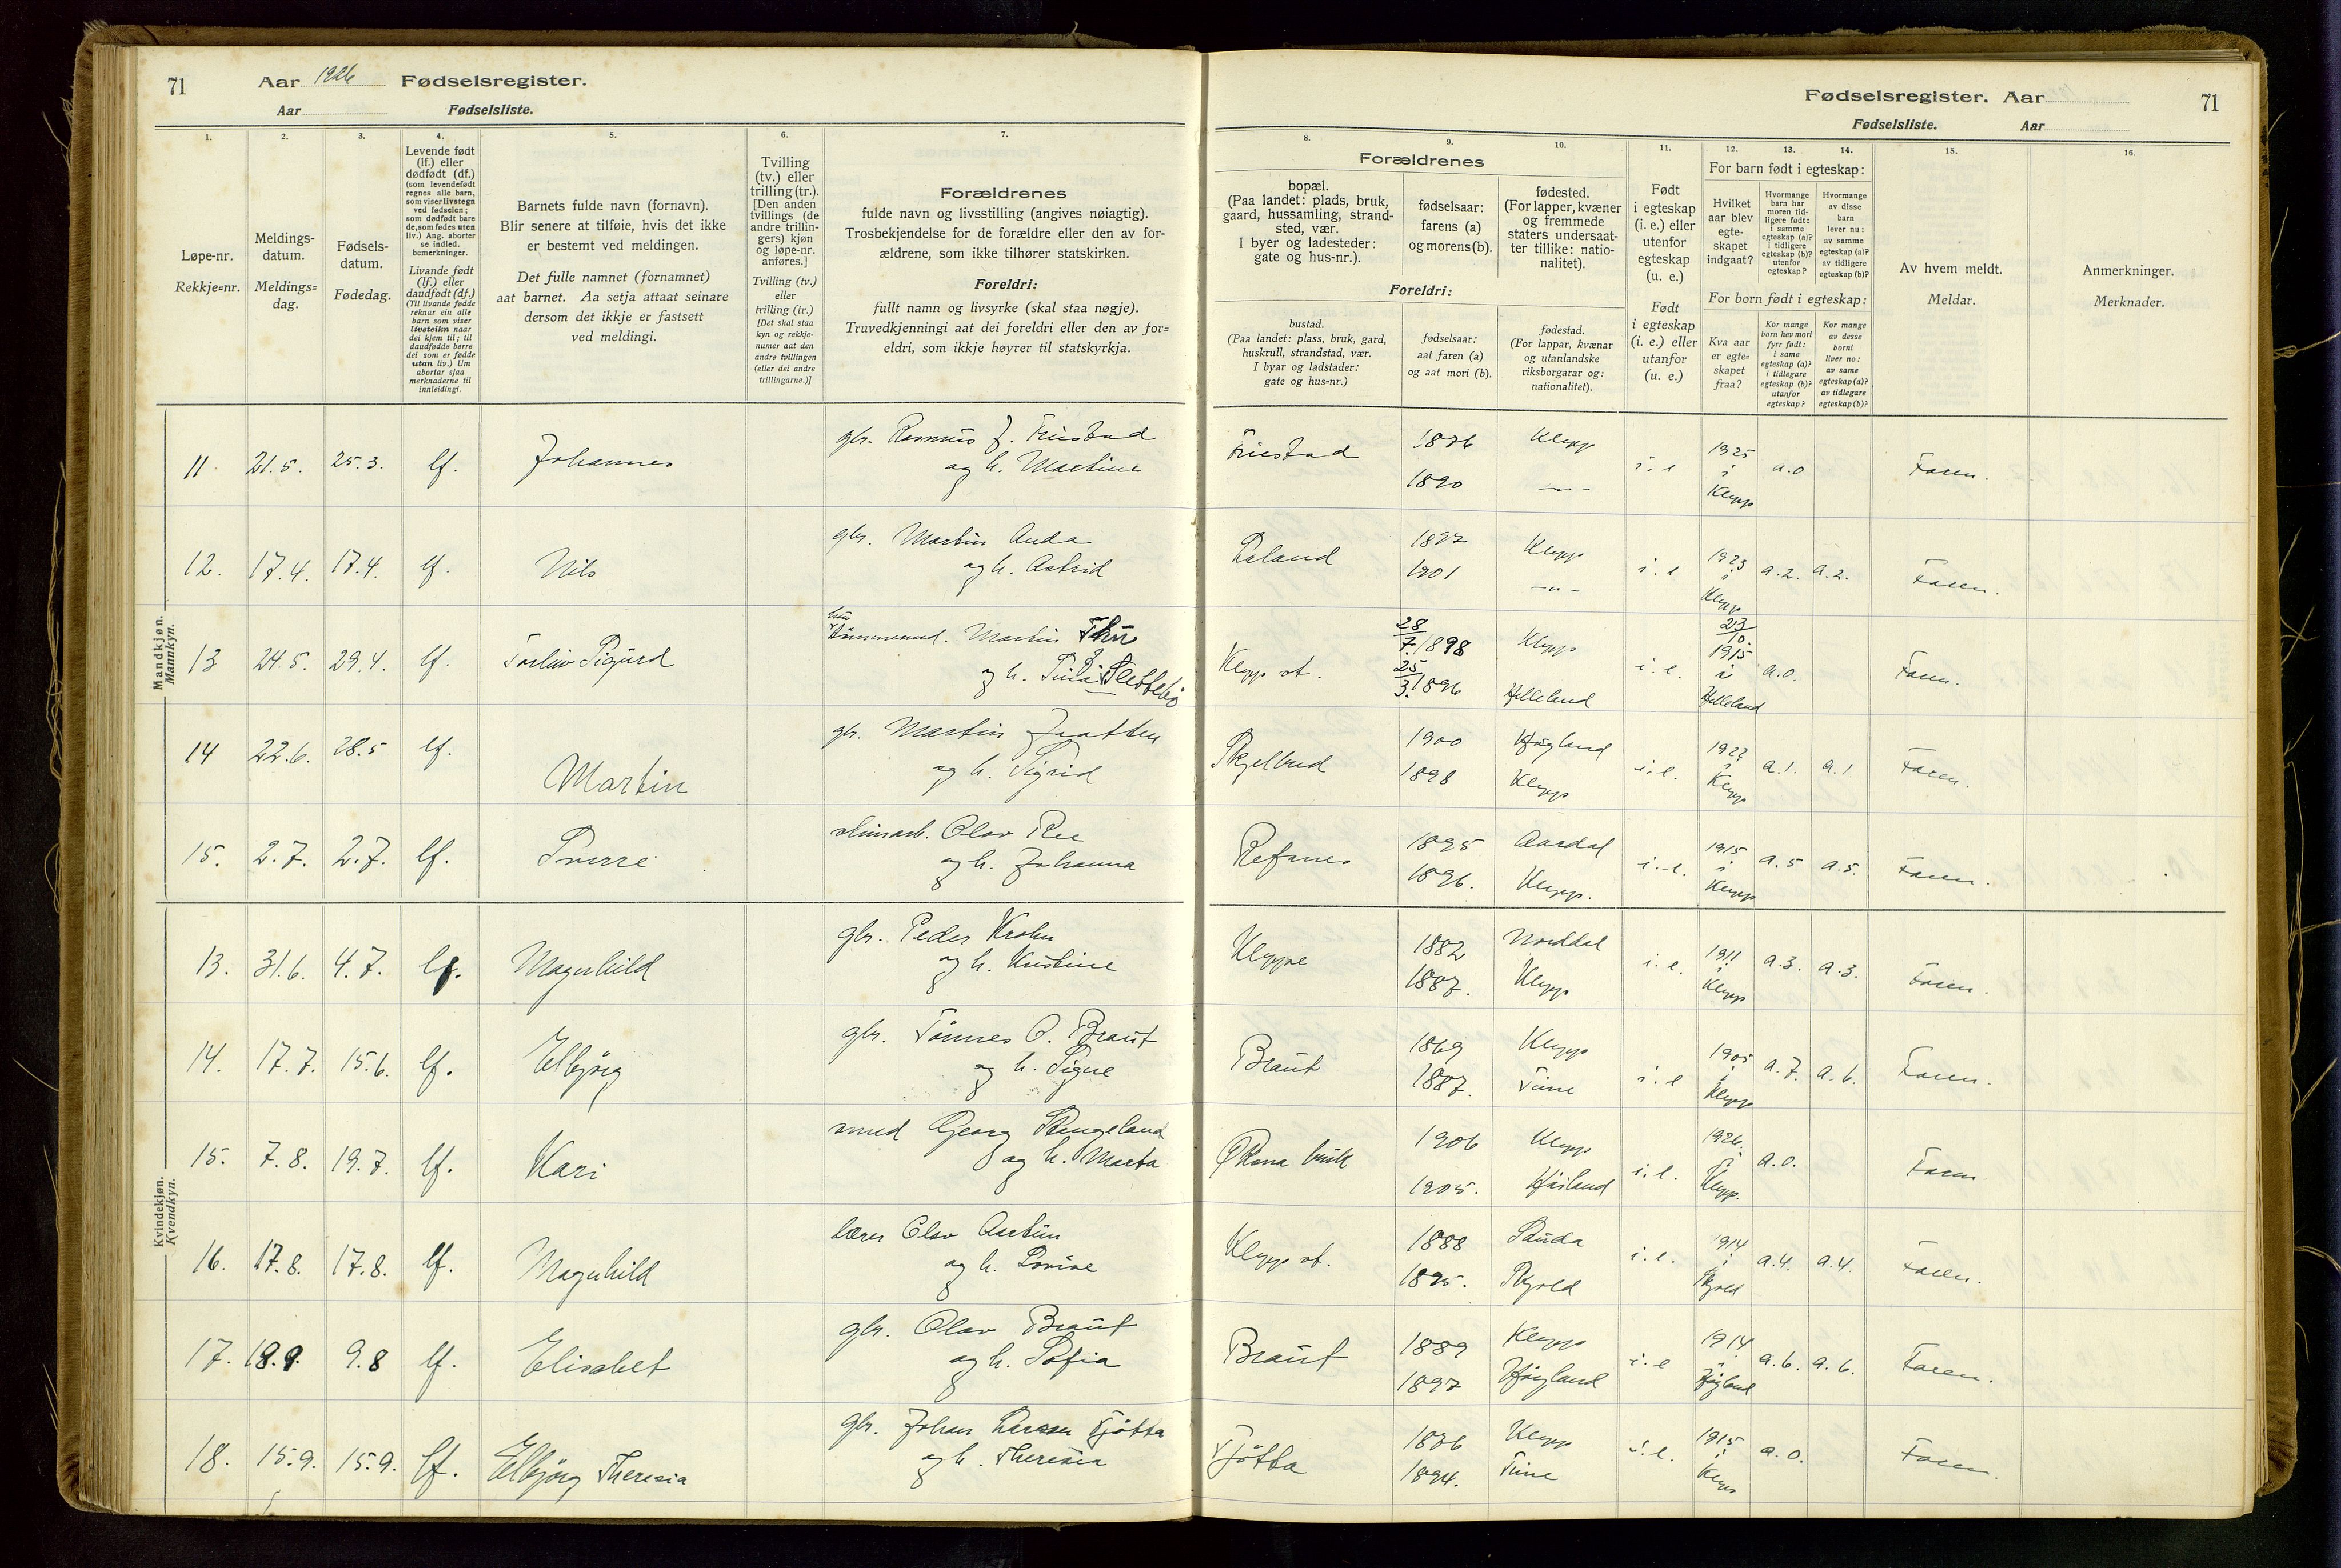 71 Aar 1926 Fødselsregister.
Aar Fødselsliste.
1. 2. 3. 4. 5. 6. 7.
Løpe-nr.
Rekkje=nr.
Meldings-
datum.
Meldings=
dag.
Fødsels-
datum.
Fødedag.
Levende født
(lf.) eller
dødfødt (df.)
(som levendefødt
regnes alle barn,
som viser livstegn
ved fødselen;
som dødfødt bare
de, som fødes uten
liv.) Ang. aborter
se indled.
bemerkninger.
Livande født
(lf.) eller
daudfødt (df.)
(Til livande fødde
reknar ein alle
barn som viser
livsteikn naar
dei kjem til; til
daudfødde berre
dei som er fødde
utan liv.) Um
abortar sjaa
merknaderne til
innleidingi.
Barnets fulde navn (fornavn).
Blir senere at tilføie, hvis det ikke
er bestemt ved meldingen.
Det fulle namnet (fornamnet)
aat barnet. Aa setja attaat seinare
dersom det ikkje er fastsett
ved meldingi.
Tvilling
(tv.) eller
trilling (tr.).
[Den anden
tvillings (de
andre trillin-
gers) kjøn
og løpe-nr.
anføres.]
Tvilling (tv.)
eller
trilling (tr.)
[Det skal staa
kyn og rekkje-
numer aat den
andre tvillingen
(eller dei andre
trillingarne.)]
Forældrenes
fulde navn og livsstilling (angives nøiagtig).
Trosbekjendelse for de forældre eller den av for-
ældrene, som ikke tilhører statskirken.
Foreldri:
fullt namn og livsyrke (skal staa nøgje).
Truvedkjenningi aat dei foreldri eller den av for=
eldri, som ikkje høyrer til statskyrkja.
Fødselsregister. Aar 71
Fødselsliste. Aar
8. 9. 10. 11. 12. 13. 14. 15. 16.
Forældrenes
bopæl.
(Paa landet: plads, bruk,
gaard, hussamling, strand-
sted, vær.
I byer og ladesteder:
gate og hus-nr.).
fødselsaar:
farens (a)
og morens (b).
fødested.
(For lapper, kvæner
og fremmede
staters undersaat-
ter tillike: natio-
nalitet).
Foreldri:
bustad.
(Paa landet: plass, bruk, gard,
huskrull, strandstad, vær.
I byar og ladstader:
gate og hus=nr.)
fødselsaar:
aat faren (a)
og aat mori (b).
fødestad.
(For lappar, kvænar
og utanlandske
riksborgarar og:
nationalitet).
Født
i egteskap
(i. e.) eller
utenfor
egteskap
(u. e.)
Født
i egteskap
(i. e.) eller
utanfor
(u. e.)
For barn født i egteskap:
Hvilket
aar blev
egte-
skapet
indgaat?
Hvormange
barn har
moren tid-
ligere født:
i samme
egteskap (a)?
i tidligere
egteskap (b)?
utenfor
egteskap?
Hvormange
av disse
barn
lever nu:
av samme
egteskap (a)?
av tidligere
egteskap (b)?
For born født i egteskap:
Kva aar
er egte=
skapet
fraa?
Kor mange
born hev mori
fyrr født:
i same
egteskap (a)?
i tidlegare
egteskap (b)?
utanfor
egteskap?
Kor mange
av desse
borni
liver no:
av same
egteskap (a)?
av tidlegare
egteskap (b)?
Av hvem meldt.
Meldar.
Anmerkninger.
Merknader.
Mandkjøn.
Mannkyn.
11 21.5. 25.3. lf. Johannes gbr. Rasmus J. Friestad
og h. Martine
Friestad 1876 Klepp i. e 1925 i Klepp a.0 Faren.
1890 —"—
12. 17.4. 17.4. lf. Nils gbr. Martin Anda
og h. Astrid
1897 Klepp i. e 1923 i Klepp a.2. a.2. Faren.
1901 —"—
13 24.5. 29.4. lf. Torleiv Sigurd Martin Thu
og h. Tina Slettebø
Klepp st. 28/7 1898 Klepp i. e. 23/10. 1915 i Helleland a.0. Faren.
25/3. 1896 Helleland
14 22.6. 28.5 lf. Martin gbr. Martin Jaatten
og h. Sigrid
Skjelbred 1900 Høgland i. e. 1922 i Klepp a.1. a.1. Faren.
1898 Klepp
15. 2.7. 2.7. lf. Sverre Olav Ree
og h. Johanna
Refsnes 1895 Aardal i. e. 1915 i Klepp a.5 a.5. Faren.
1896. Klepp.
Kvindekjøn.
Kvendkyn.
13. 31.6. 4.7. lf. Magnhild gbr. Peder Krohn
og h. Kristine
Kleppe 1882 Norddal i. e. 1911 i Klepp a.3. a.3. Faren.
1887. Klepp
14. 17.7. 15.6. lf. Elbjørg gbr. Tønnes O. Braut
og h. Signe
Braut 1869 Klepp i. e 1905 i Klepp a.7. a.6. Faren.
1887. Time
15. 7.8. 19.7. lf. Kari smed Georg Stangeland
og h. Marta
Øksna bruk 1906 Klepp i. e. 1926. i Klepp. a.0. Faren
1905.
16. 17.8. 17.8. lf. Magnhild lærer Olav Austun
og h. Lovise
Klepp st. 1888 Sauda i. e. 1914 i Skjold a.4. a.4. Faren.
1895. Skjold
17. 18.9. 9.8 lf. Elisabet gbr. Olav Braut
og h. Sofia
Braut 1889 Klepp i. e 1914 i Høgland a.6. a.6. Faren.
1897 Høgland
18. 15.9. 15.9. lf. Elbjørg Theresia gbr. Johan Larsen Tjøtta
og h. Theresia
Tjøtta 1886 Klepp i. e. 1915 i Klepp a.0. Faren.
1894. Time